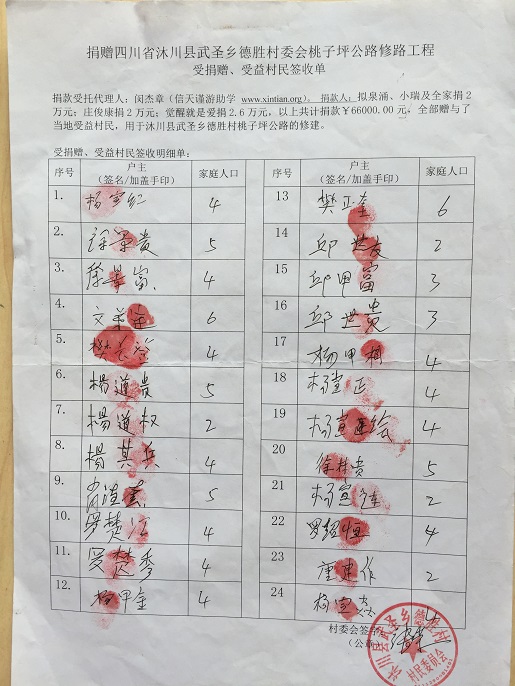 捐赠四川省沐川县武圣乡德胜村委会桃子坪公路修路工程
受捐赠、受益村民签收单
捐款受托代理人：闵杰章（信天谨游助学 www.xintian.org）。 捐款人：拟泉涌、小瑞及全家捐2
万元；庄俊康捐2万元；觉醒就是爱捐2.6万元，以上共计捐款￥66000.00元，全部赠与了
当地受益村民，用于沐川县武圣乡德胜村桃子坪公路的修建。
受捐赠、受益村民签收明细单：
序号 户主（签名/加盖手印） 家庭人口 序号 户主（签名/加盖手印） 家庭人口
1. 杨 4 13 樊正奎 6
2. 贵 5 14 邱世友 2
3. 富 4 15 邱甲富 3
4. 文 6 16 邱世贵 3
5. 樊 4 17 杨甲桐 4
6. 楊道贵 5 18 杨宣正 4
7. 楊道权 2 19 杨宣 4
8. 楊其兵 4 20 徐林贵 5
9. 5 21 杨宣 2
10. 罗楚江 4 22 罗绍恒 4
11. 罗楚秀 4 23 唐建作 2
12. 杨甲全 4 24 杨
村委会签字
（公章）
沐川县武圣乡德胜村
村民委员会